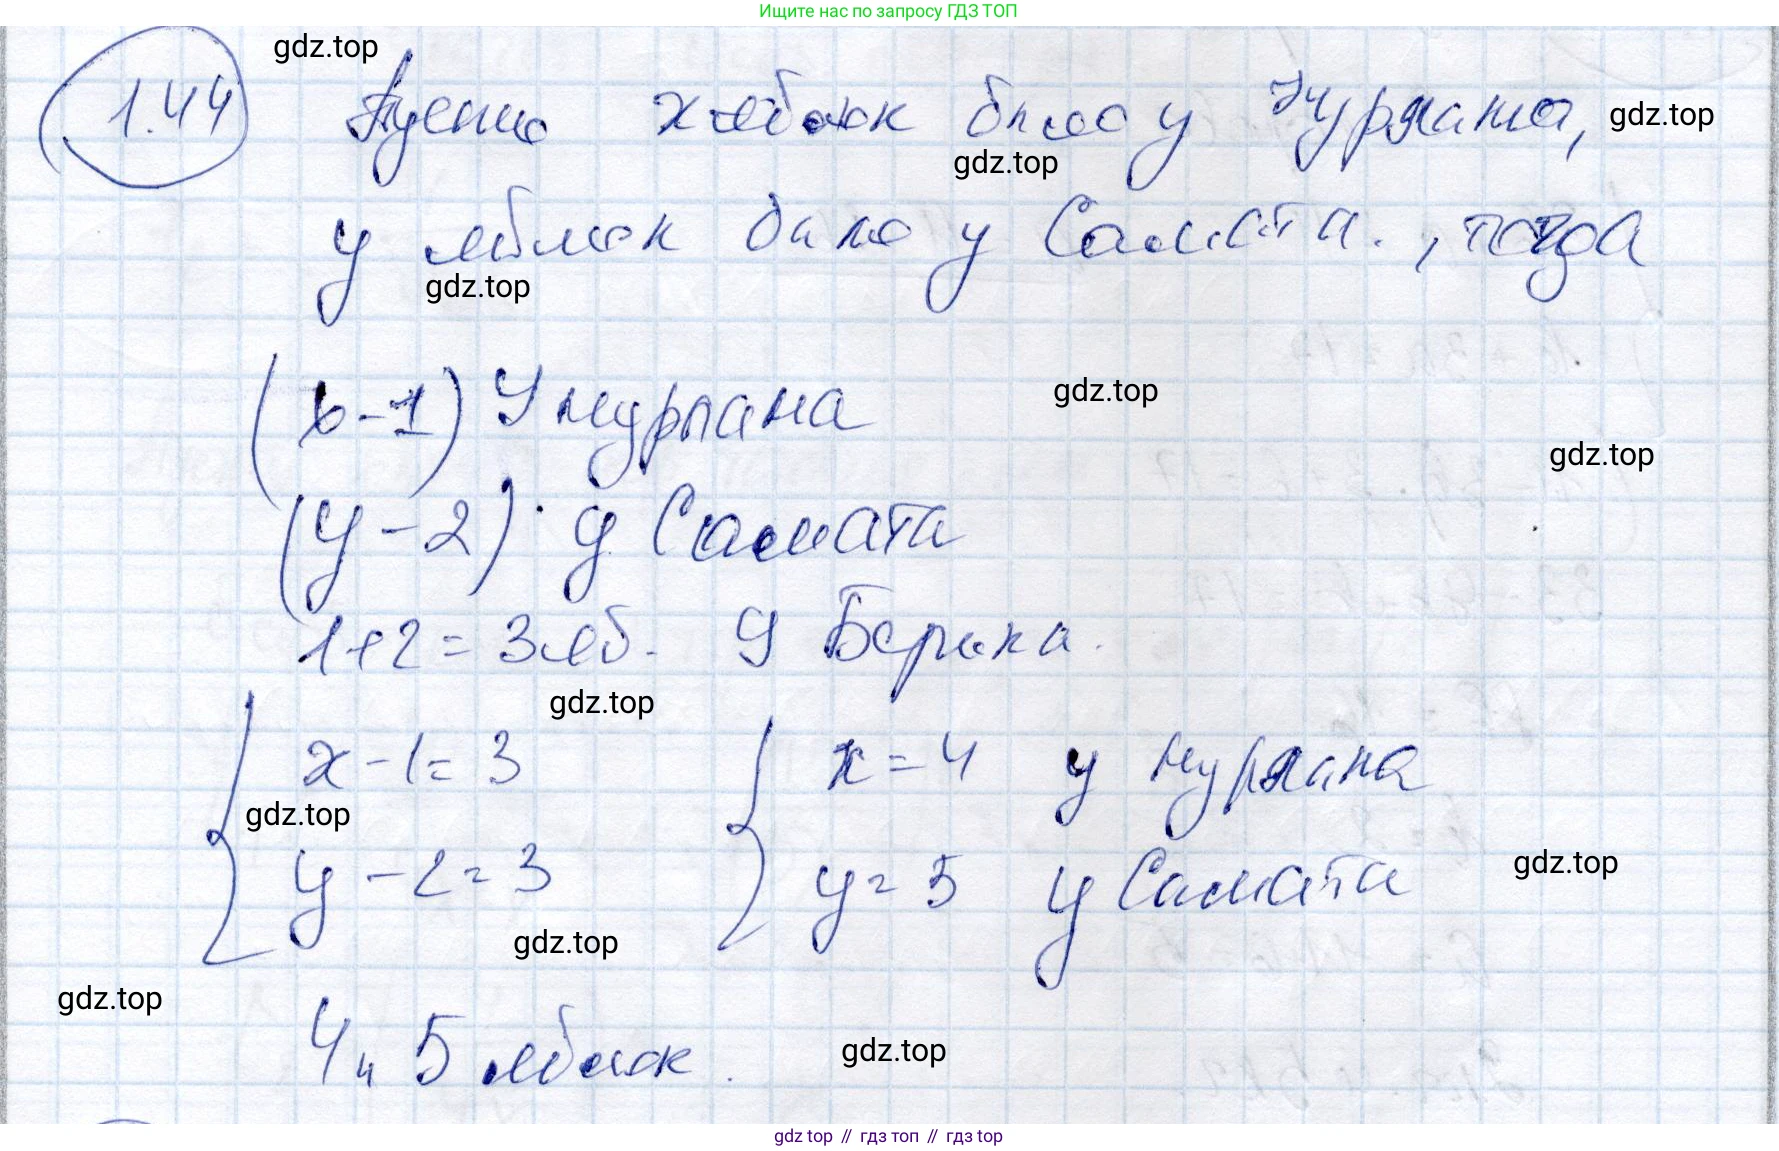 Ищите нас по запросу ГДЗ ТОП
gdz.top
1.44 Пусть x яблок было у Нурлана, gdz.top
gdz.top
y яблок было у Самата., тогда
gdz.top
(x-1) У нурлана gdz.top
gdz.top
(y-2) у Самата
1+2=3 яб. У Берика.
gdz.top
x-1=3 x=4 у нурлана
gdz.top
y-2=3 y=5 у Самата gdz.top
gdz.top
gdz.top
4 и 5 яблок. gdz.top
gdz top // гдз топ // gdz top